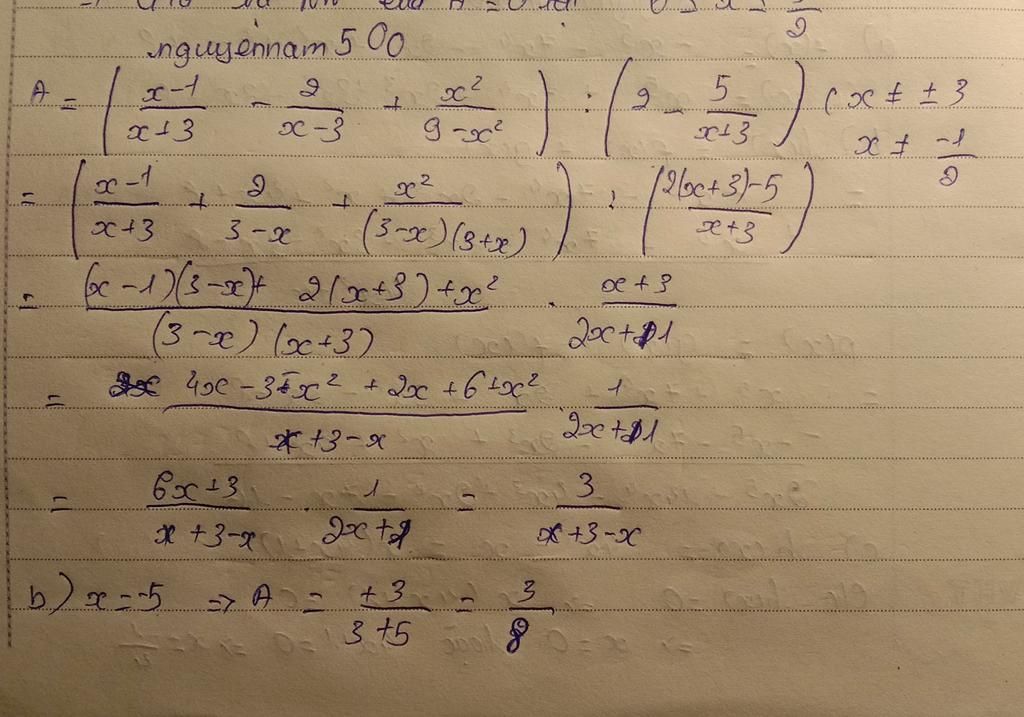 nguyennam 500
A = ( (x-1)/(x+3) - 2/(x-3) + x²/(9-x²) ) : ( 2 - 5/(x+3) ) ( x ≠ ±3
x ≠ -1/2
= ( (x-1)/(x+3) + 2/(3-x) + x²/((3-x)(3+x)) ) : ( (2(x+3)-5)/(x+3) )
= ((x-1)(3-x)+ 2(x+3)+x²)/((3-x)(x+3)) . (x+3)/(2x+1)
= (4x-3-x²+2x+6+x²)/(+3-x) . 1/(2x+1)
= (6x+3)/(+3-x) . 1/(2x+1) = 3/(+3-x)
b) x=-5 => A = +3/(3+5) = 3/8